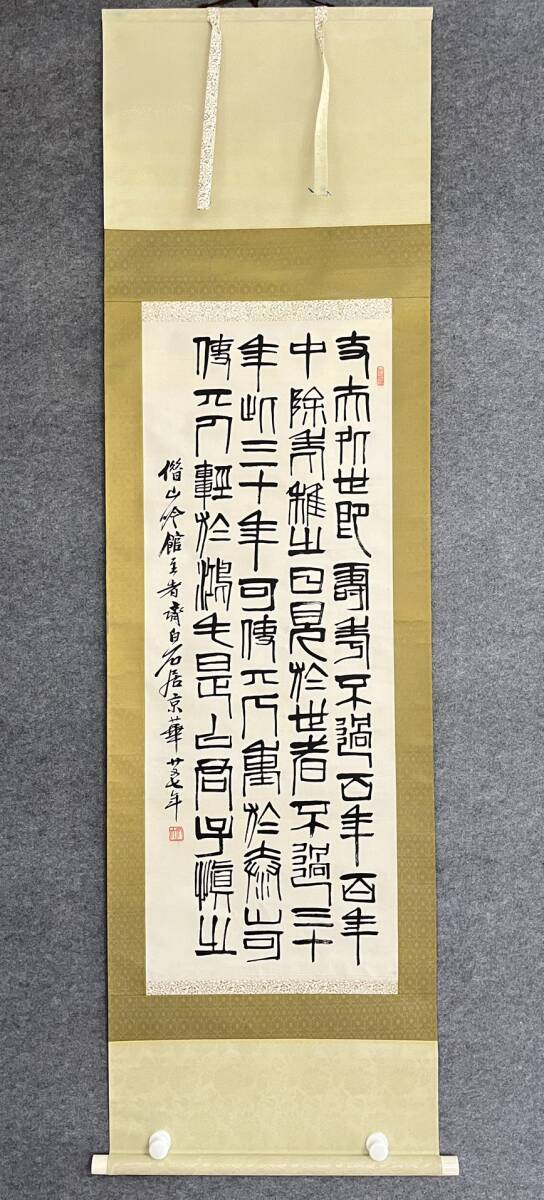 丈夫処世即壽考不過百年百年
中除老稚之日見於世者不過三十
年此三十年可使丌人重於泰山可
使丌人輕於鴻毛是以君子慎之
借山吟館主者齊白石居京華廿又七年